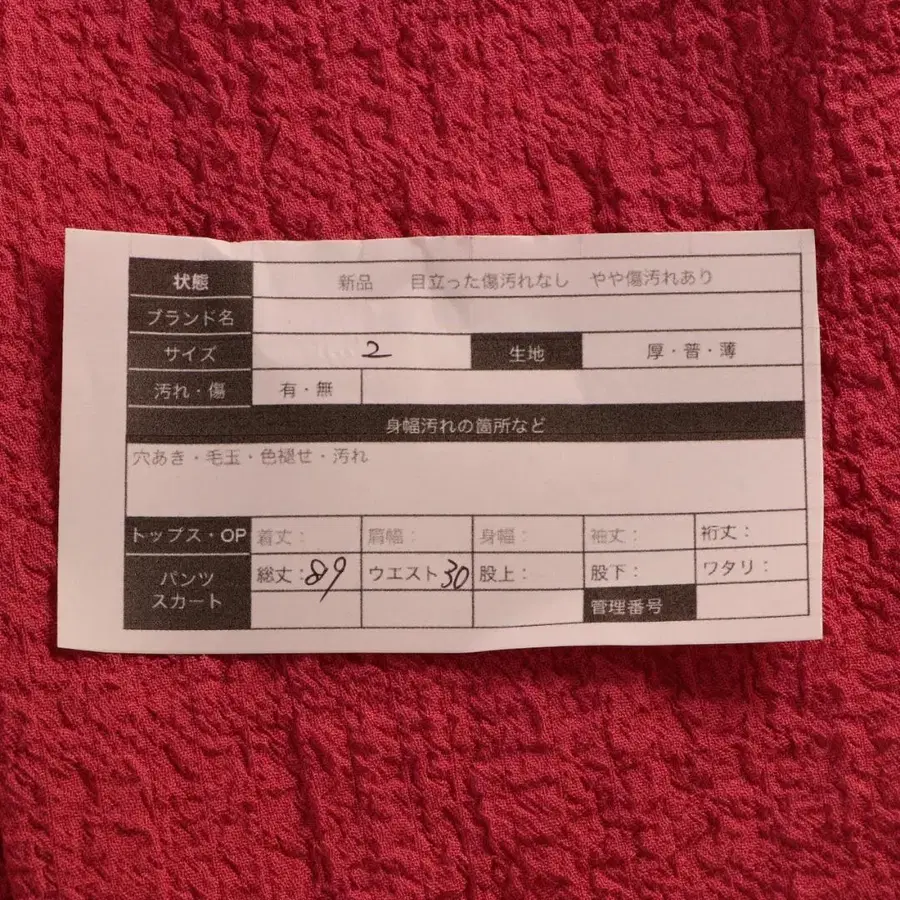 状態 新品 目立った傷汚れなし やや傷汚れあり
ブランド名
サイズ 2 生地 厚・普・薄
汚れ・傷 有・無
身幅汚れの箇所など
穴あき・毛玉・色褪せ・汚れ
トップス・OP 着丈： 肩幅： 身幅： 袖丈： 裄丈：
パンツ 総丈：89 ウエスト30 股上： 股下： ワタリ：
スカート 管理番号